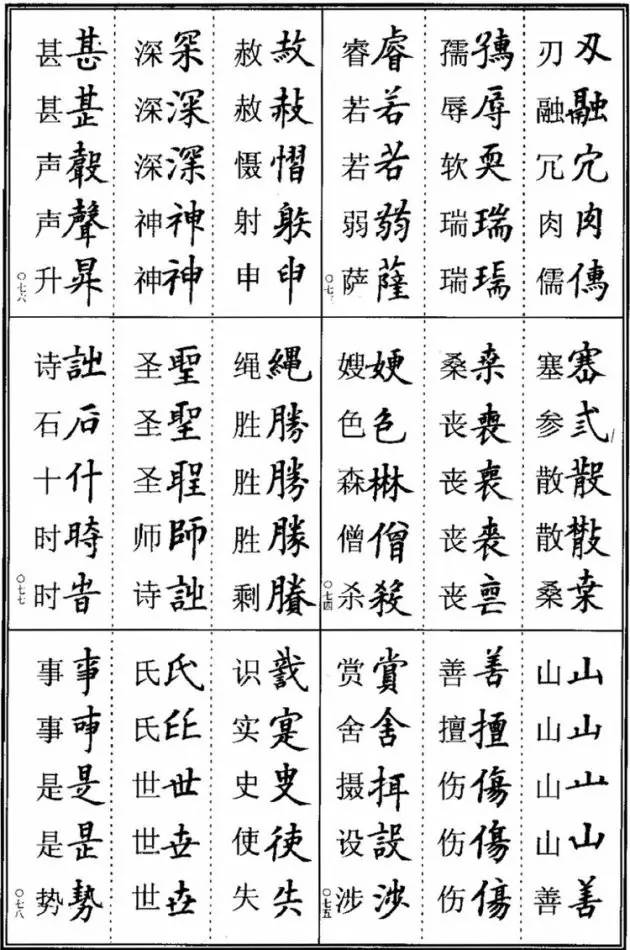 刃刄
融融
冗宂
肉肉
儒
孺
辱辱
软耎
瑞瑞
瑞
睿睿
若若
若若
弱
萨薩
〇七三
赦赦
赦
慑慴
射躲
申申
深罙
深深
深深
神神
神神
甚甚
甚
声
声聲
升昇
〇七六
塞
参弎
散散
散
桑桒
桑桒
丧喪
丧
丧
丧
嫂㛐
色色
森
僧僧
杀殺
〇七四
绳繩
胜勝
胜勝
胜勝
剩
圣聖
圣聖
圣
师師
诗
诗
石石
十什
时
时旹
〇七七
山山
山山
山山
山山
善善
善善
擅擅
伤傷
伤傷
伤
赏賞
舍舍
摄
设設
涉涉
〇七五
识
实寔
史
使
失
氏氏
氏
世世
世
世
事事
事
是是
是昰
势勢
〇七八